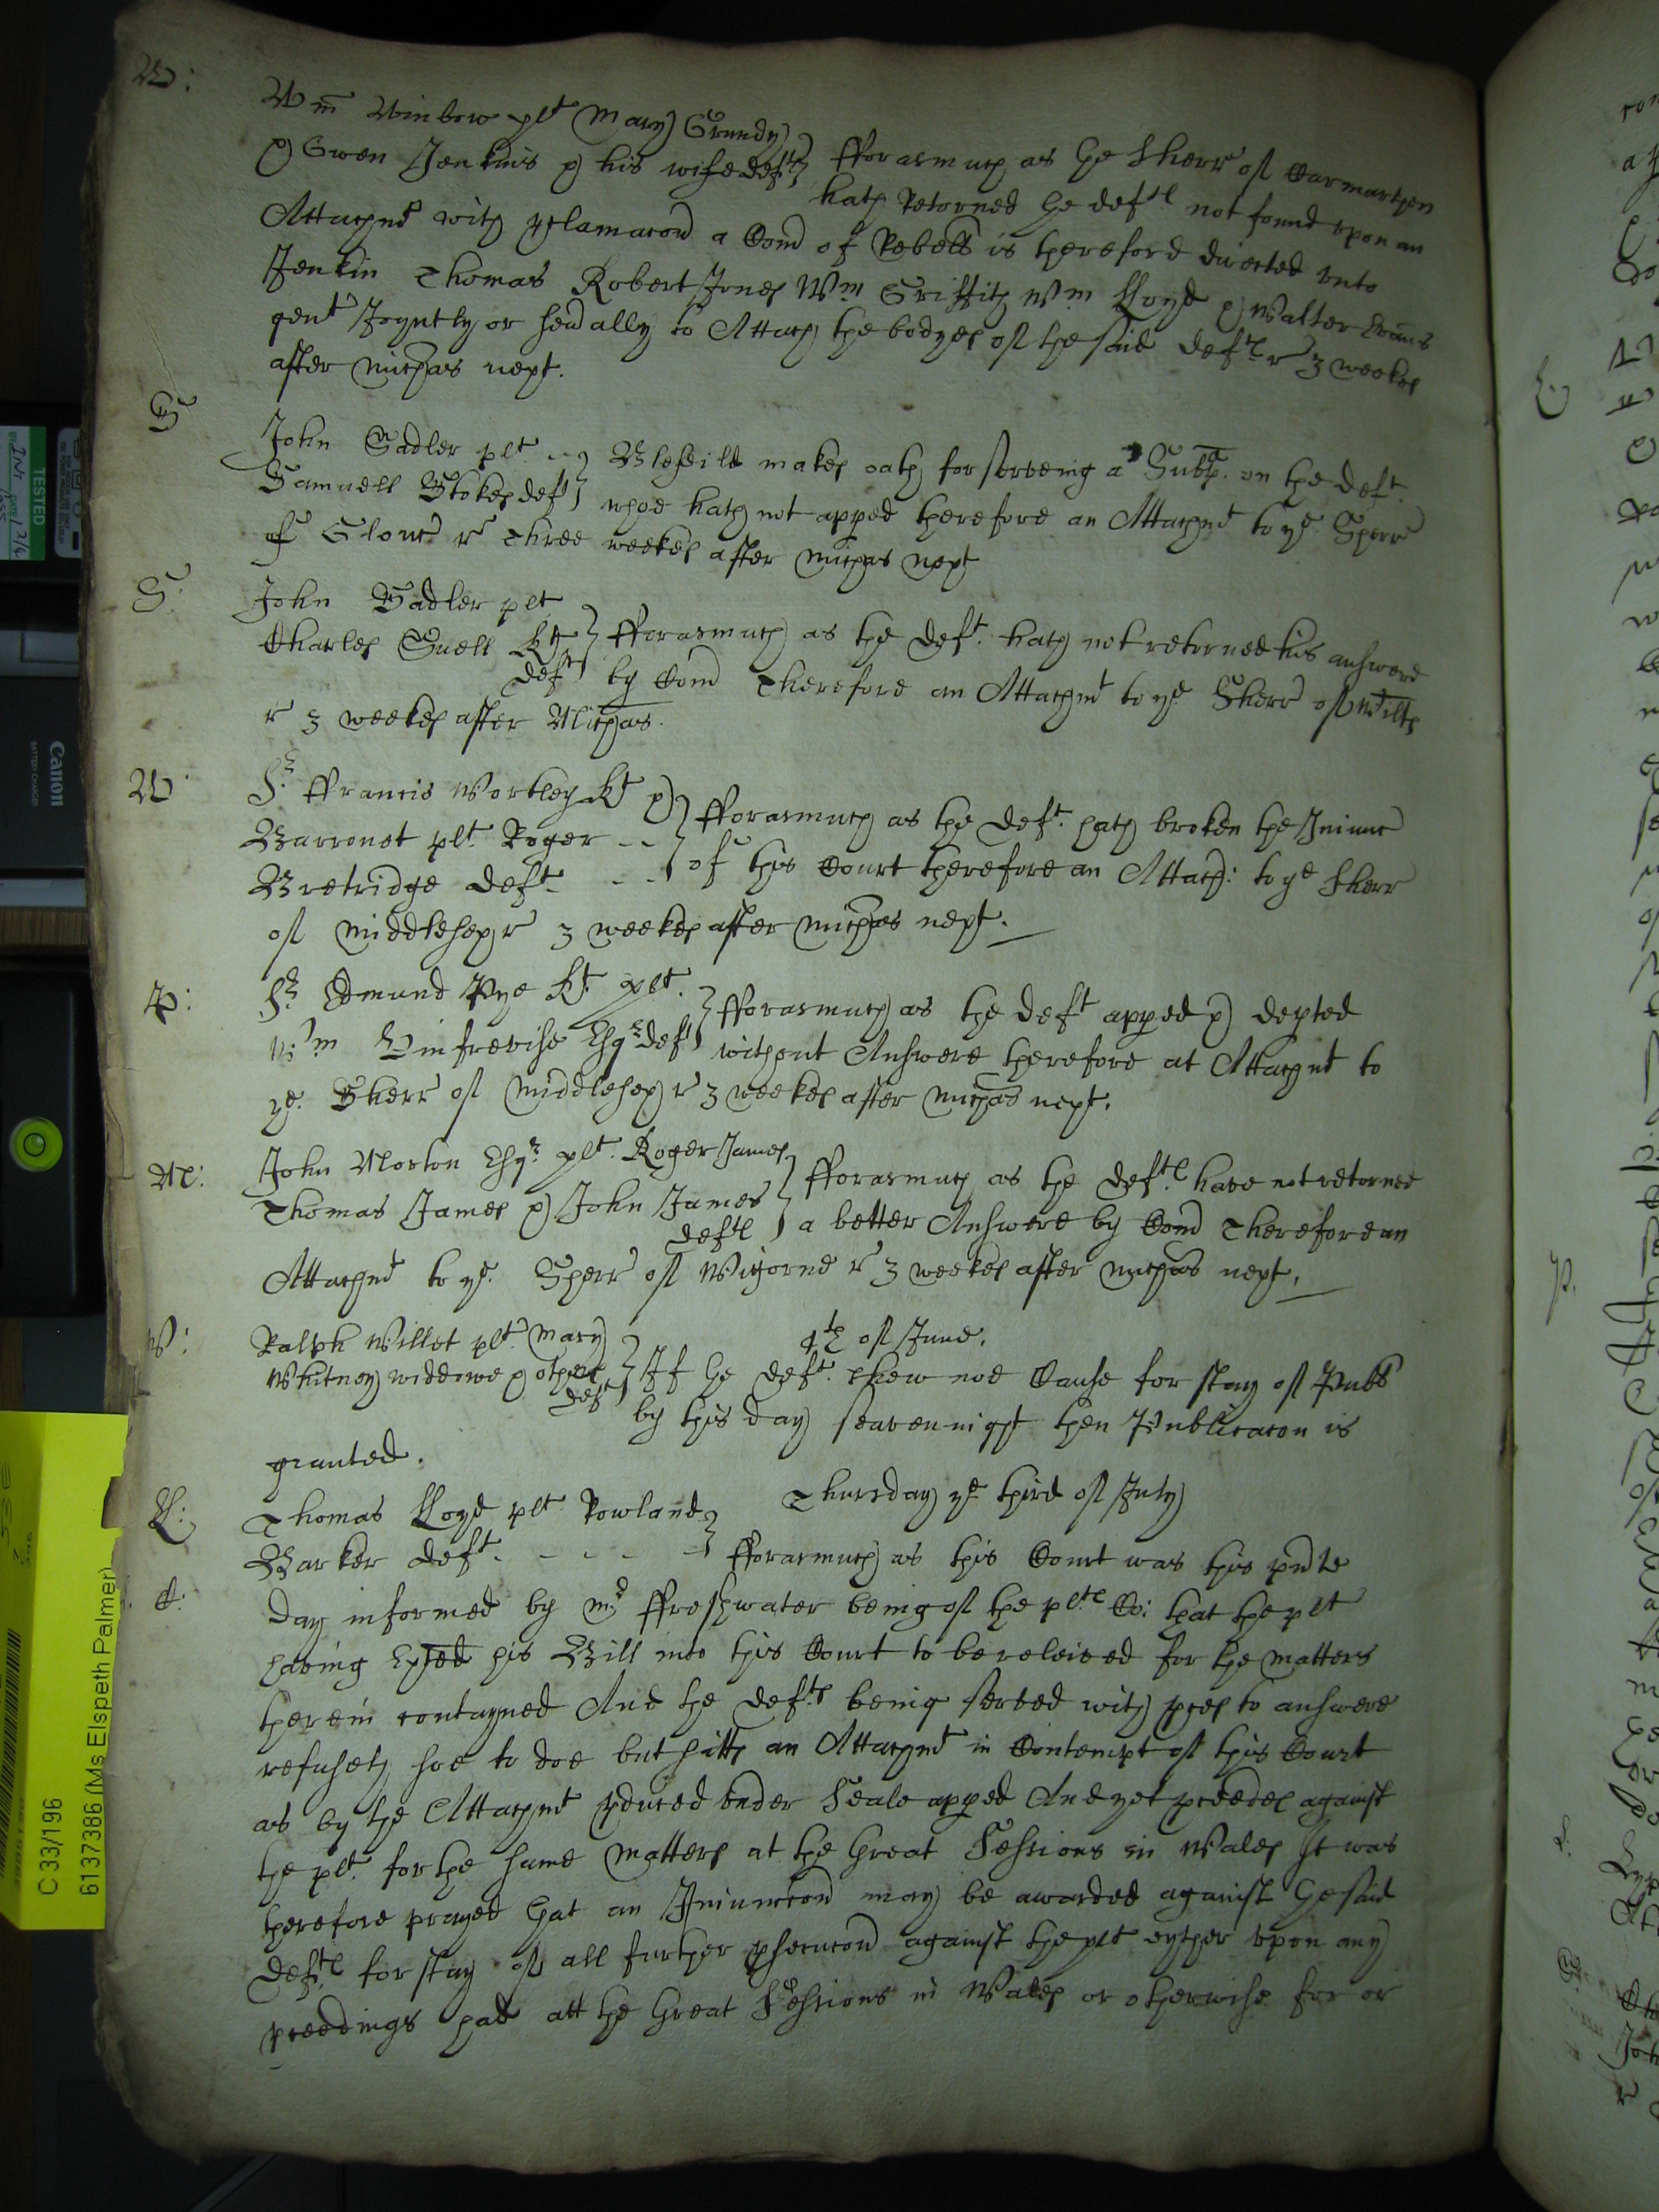 W:
Wm Winbow plt Mary Grundy
& Gwen Jenkins & his wife deftes } fforasmuch as the Sherr of Carmarthen
hath Retorned the deftes not found upon an
Attachmt with pclamacon a Comd of Rebell is therefore directed unto
Jenkin Thomas Robert Jones Wm Griffith Wm Lloyd & Walter Evans
gent Joyntly or sevally to Attach the bodyes of the said deftes r 3 weekes
after michas next.
S
John Sadler plt
Samuell Stokes deft } makes oath for serveing a Subp. on the deft
whoe hath not apped therefore an Attachmt to ye Sherr
of Glouc r Three weekes after michas next
S:
John Sadler plt
Charles Snell Kt
deft } fforasmuch as the deft. hath not retorned his answere
by Comd Therefore an Attachmt to ye Sherr of Wiltes
r 3 weekes after Michas.
W
Sr. ffrancis Wortley Kt &
Barronet plt. Roger - - } fforasmuch as the deft. hath broken the Iniunc
Bretridge deft - - of this Court therefore an Attach: to ye Sherr
of Middlesex r 3 weekes after michas next.
P:
Sr. Edmund Pye Kt. plt.
Wm Esqr deft } fforasmuch as the deft apped & depted
without Answere therefore at Attachmt to
ye. Sherr of Middlesex r 3 weekes after michas next.
M:
John Morton Esqr. plt. Roger James
Thomas James & John James
deftes } fforasmuch as the deftes have not retorned
a better Answere by Comd Therefore an
Attachmt to ye. Sherr of Wigorne r 3 weekes after michas next,
W:
4th of June.
Ralph Willet plt. Mary
Whitney widdowe & others
deftes } If the deft. shew noe Cause for stay of Publ
by this day seavennight then Publicacon is
granted.
Ll:
Thursday ye third of July
Thomas Lloyd plt Rowland
Barker deft. - - - - } fforasmuch as this Court was this pnte
C:
day informed by mr ffreshwater being of the pltes Co: that the plt
having his Bill into this Court to be releived for the matters
therein contayned And the deftes being served with pces to answere
refuseth soe to doe but sitts an Attachmt in Contempt of this Court
as by the Attachmt pduced under Seale apped And yet pceedes against
the plt. for the same matters at the Great Sessions in Wales It was
therefore prayed that an Iniunccon may be awarded against the said
deftes for stay of all further psecucon against the plt eyther upon any
pceedings had att the Great Sessions in Wales or otherwise for or
C 33/196
6137386 (Ms Elspeth Palmer)
TESTED
Canon
BATTERY CHARGER